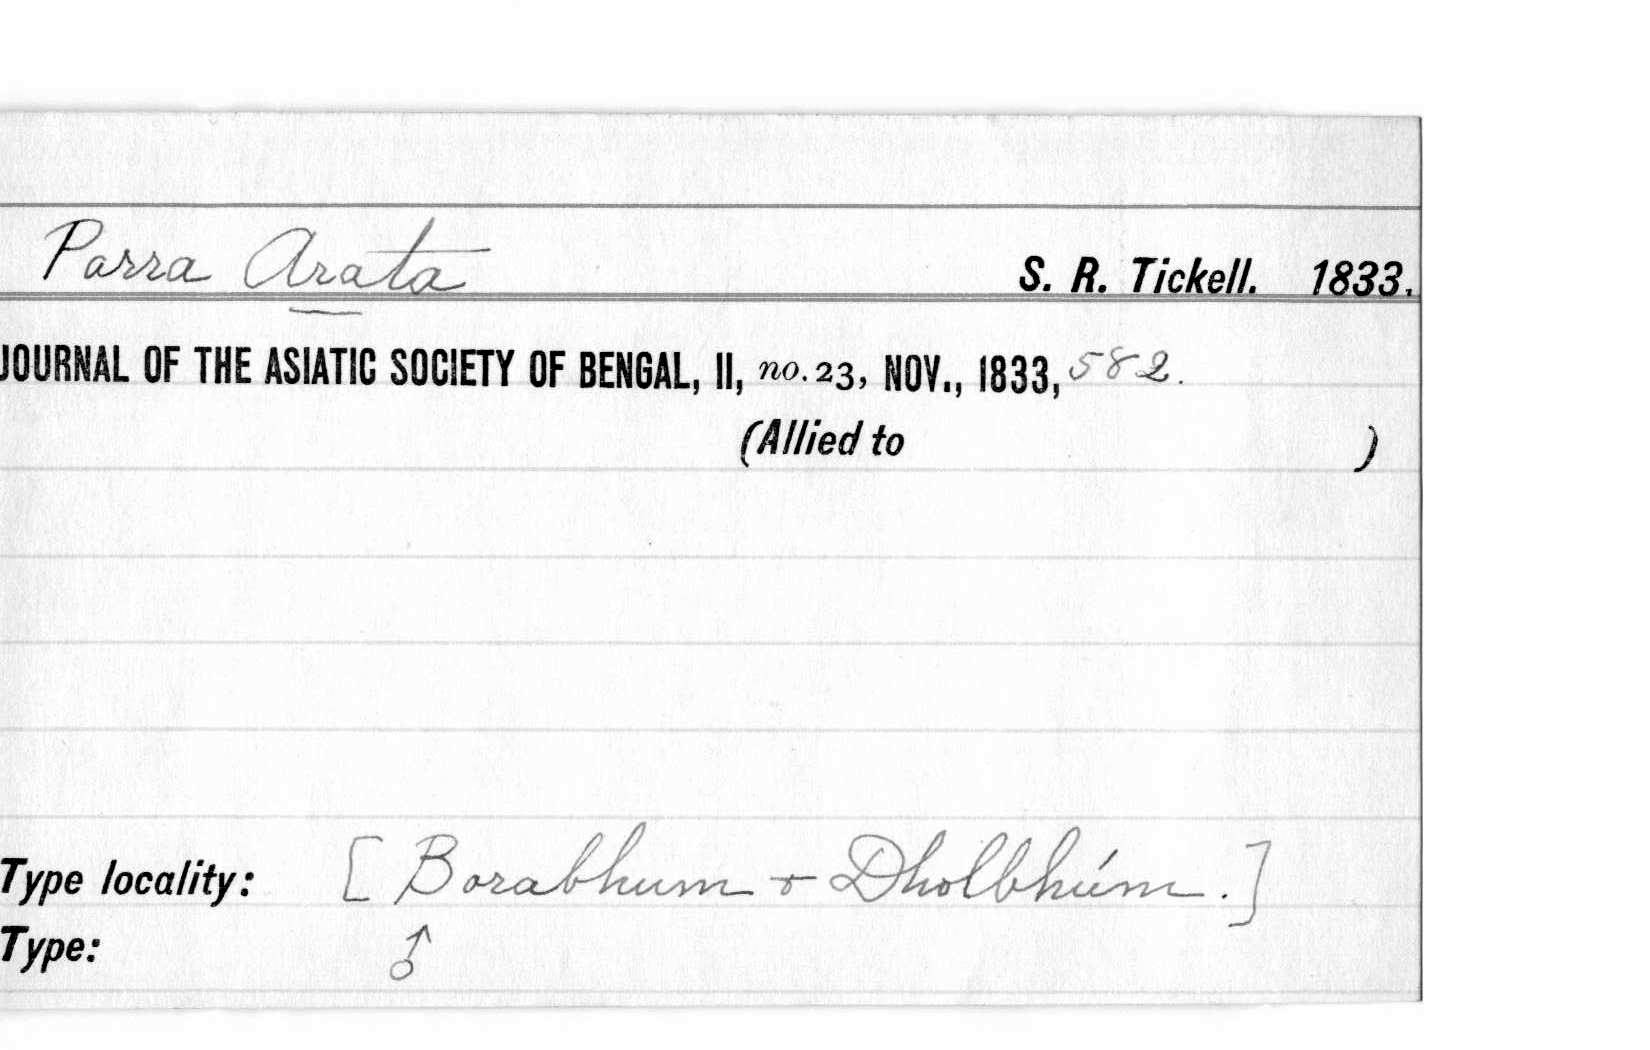 Parra Arata S. R. Tickell. 1833.
JOURNAL OF THE ASIATIC SOCIETY OF BENGAL, II, no. 23, NOV., 1833, 582.
(Allied to )
Type locality: [Borabhum + Dholbhúm.]
Type: ♂